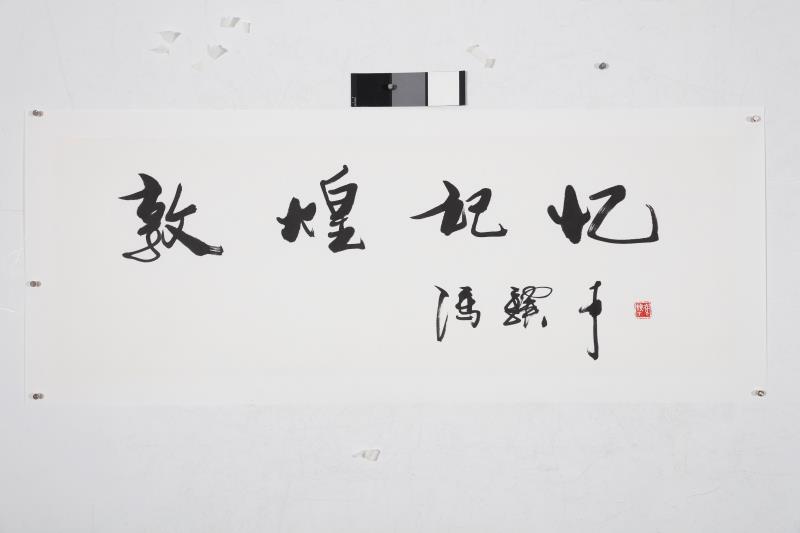 敦煌记忆
冯骥才